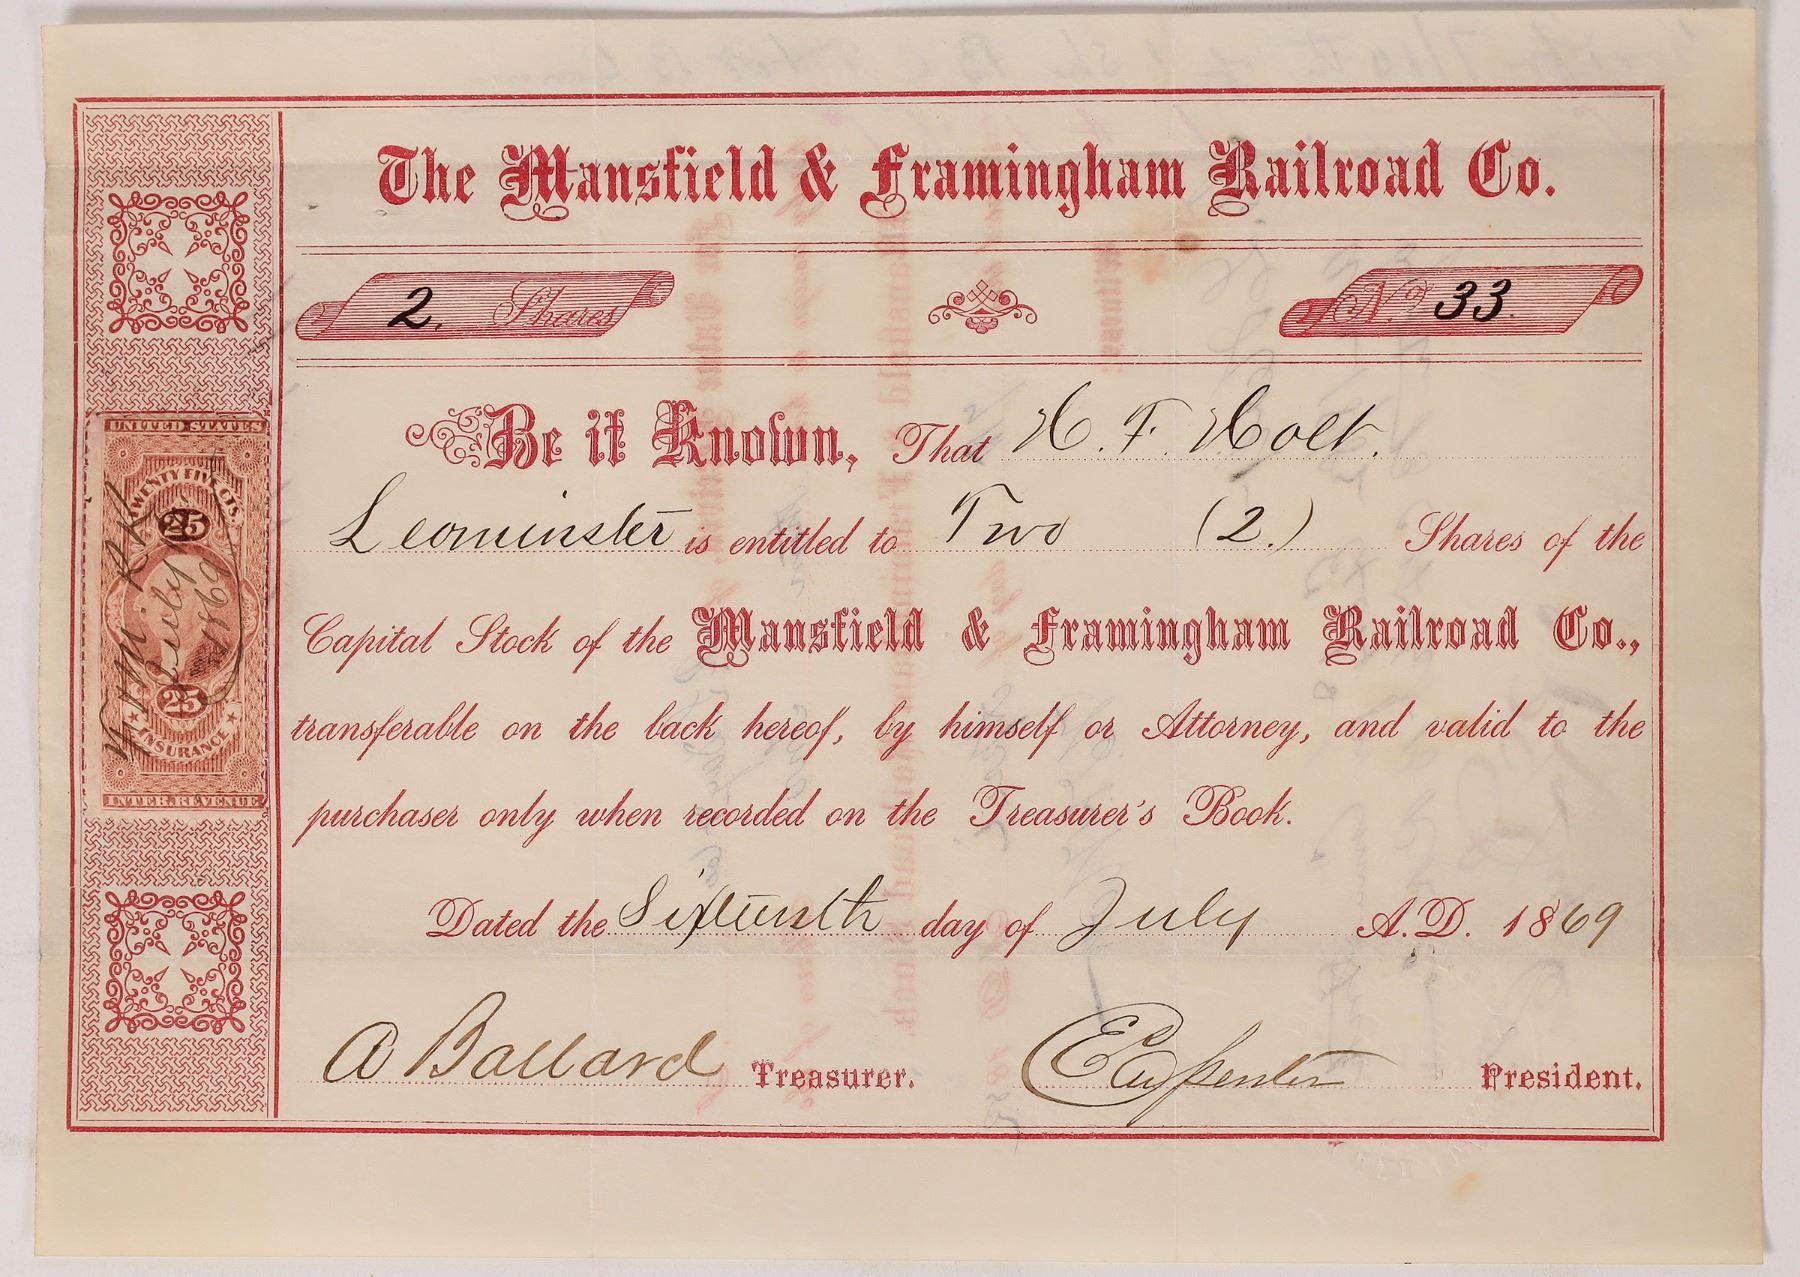 The Mansfield & Framingham Railroad Co.
2. Shares
No. 33
Be it Known, That H. F. Holt.
Leominster is entitled to Two (2.) Shares of the
Capital Stock of the Mansfield & Framingham Railroad Co.,
transferable on the back hereof, by himself or Attorney, and valid to the
purchaser only when recorded on the Treasurer's Book.
Dated the Sixteenth day of July A.D. 1869
A Ballard Treasurer.
E Carpenter President.
UNITED STATES
TWENTY FIVE CTS.
25
25
INSURANCE
INTER. REVENUE
July
1869